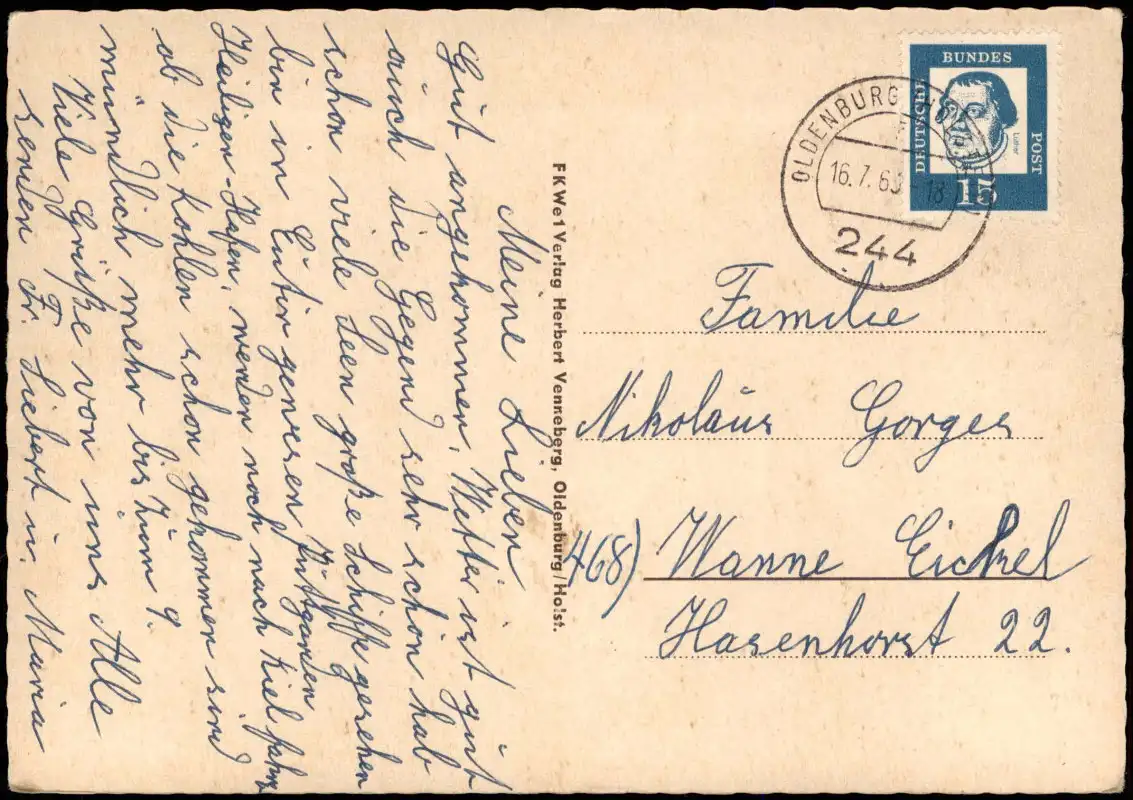 Meine Lieben.
Gut angekommen, Wetter ist gut
auch die Gegend sehr schön hab
schon viele Seen große Schiffe gesehen
bin in Eutin gewesen Püttgarden
Heiligen-Hafen, werden noch nach Kiel fahr
ob die Kohlen schon gekommen sind
mündlich mehr bis zum 9.
Viele Grüße von uns Alle
senden Fr. Siebert u. Maria
FKWe1 Verlag Herbert Venneberg, Oldenburg/Holst.
DEUTSCHE
BUNDES
POST
Luther
15
OLDENBURG (HOLST)
16.7.63 - 18
244
Familie
Nikolaus Gorges
(468) Wanne Eickel
Hasenhorst 22.